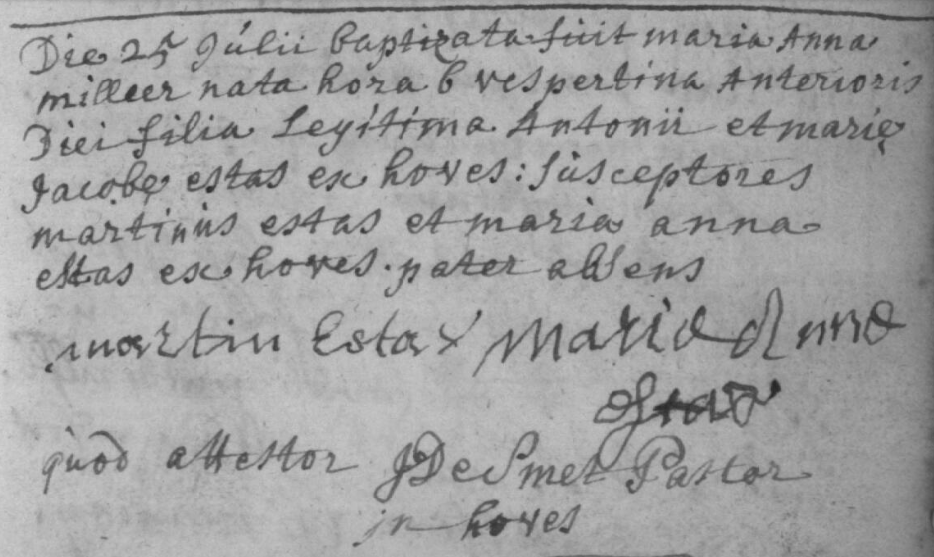 Die 25ᵃ Júlii baptizata fúit maria Anna
milleer nata hora 6 vespertina Anterioris
Diei filia Legitima Antonii et marię
Jacobę estas ex hoves: súsceptores
martinús estas et maria anna
estas ex hoves. pater absens
martin Estas Marie Anne
Estas
qúod attestor JDeSmet Pastor
in hoves